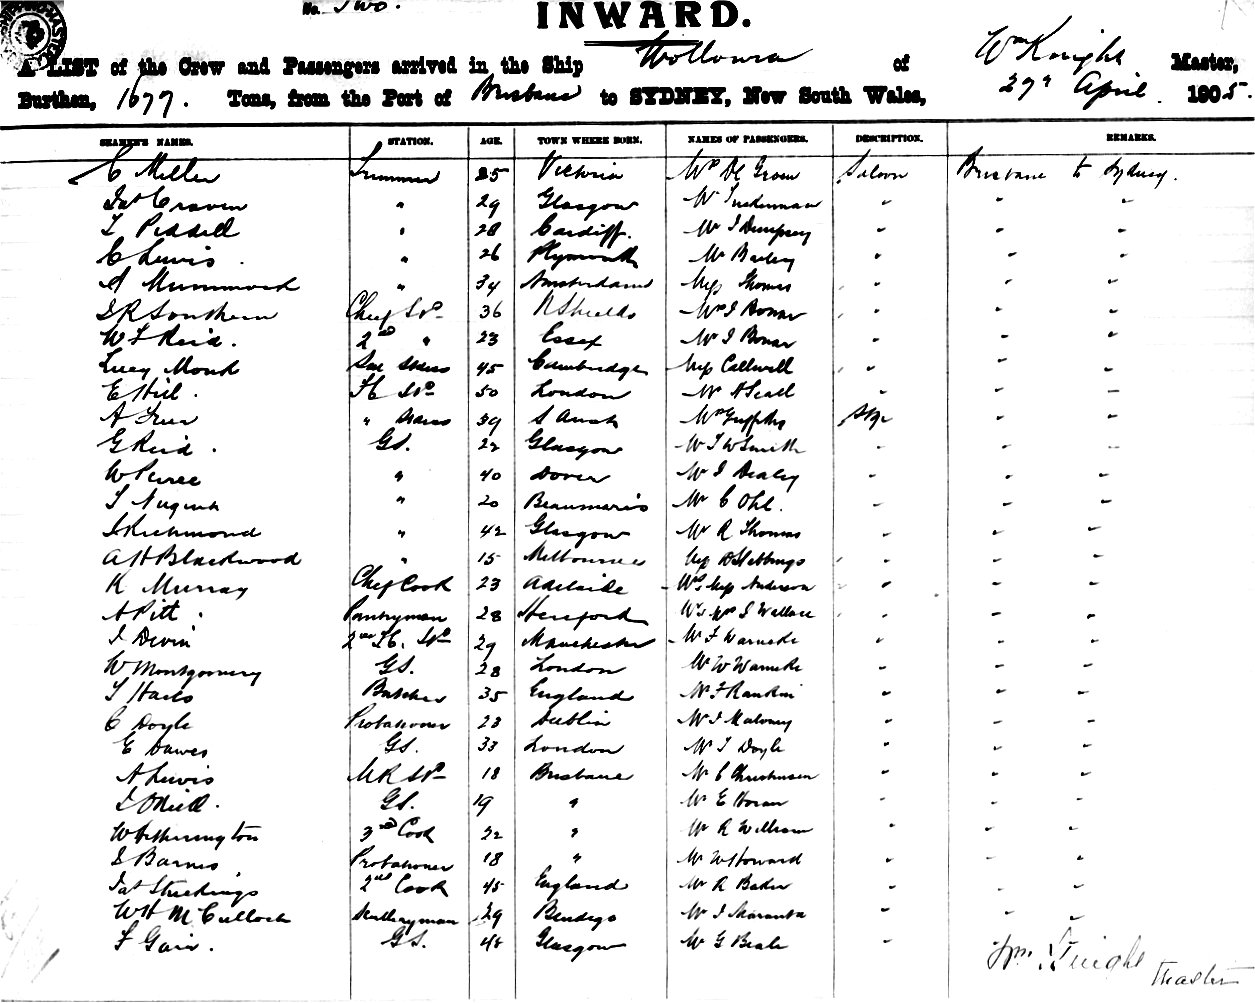 No. Two.
INWARD.
A LIST of the Crew and Passengers arrived in the Ship Wollowra of Wm Knight Master,
Burthen, 1077. Tons, from the Port of Brisbane to SYDNEY, New South Wales, 27th April 1905.
SEAMEN'S NAMES. STATION. AGE. TOWN WHERE BORN. NAMES OF PASSENGERS. DESCRIPTION. REMARKS.
C Miller Trimmer 25 Victoria Mrs De Groen Saloon Brisbane to Sydney.
Jas Craven " 29 Glasgow Mr " " "
T " 28 Cardiff. Mr J Dempsey " " "
C Lewis " 26 Plymouth Mr Bailey " " "
A " 34 Amsterdam Miss Thomas " " "
J R Southern Chief Std 36 N Shields Mrs J Bonar " " "
W J Reid. 2nd " 23 Essex Mr J Bonar " " "
Lucy Monk Sal Stdess 45 Cambridge Miss Callwell " " "
E Hill FC Std 50 London Mr " " "
A " Stdess 39 S Aust Mr Griffiths Stge " "
G Reid GS. 22 Glasgow Mr J W Smith " " "
W Peirce " 40 Dover Mr J Healey " " "
T Nugent " 20 Beaumaris Mr C Ohl. " " "
J Richmond " 42 Glasgow Mr R Thomas " " "
A H Blackwood " 15 Melbourne Miss D Stebbings " " "
K Murray Chief Cook 23 Adelaide Miss Anderson " " "
A Pitt Pantryman 28 Hereford Mrs S Wallace " " "
J Devin 2nd FC. Std 29 Manchester Mr F Warneke " " "
W Montgomery GS. 28 London Mr W Warneke " " "
T Hails Butcher 35 England Mr J Rankin " " "
C Doyle Probationer 23 Dublin Mr J Maloney " " "
E Dawes GS. 33 London Mr J Doyle " " "
A Lewis MR Std 18 Brisbane Mr C Christensen " " "
J O'Neill. GS. 19 " Mr E Horan " " "
W Hetherington 3rd Cook 22 " Mr R William " " "
J Barnes Probationer 18 " Mr W Howard " " "
Jas Stuckings 2nd Cook 45 England Mr R Baker " " "
W H McCulloch Sculleryman 29 Bendigo Mr J " " "
F Gair. GS. 48 Glasgow Mr G Beale
Wm Knight
Master